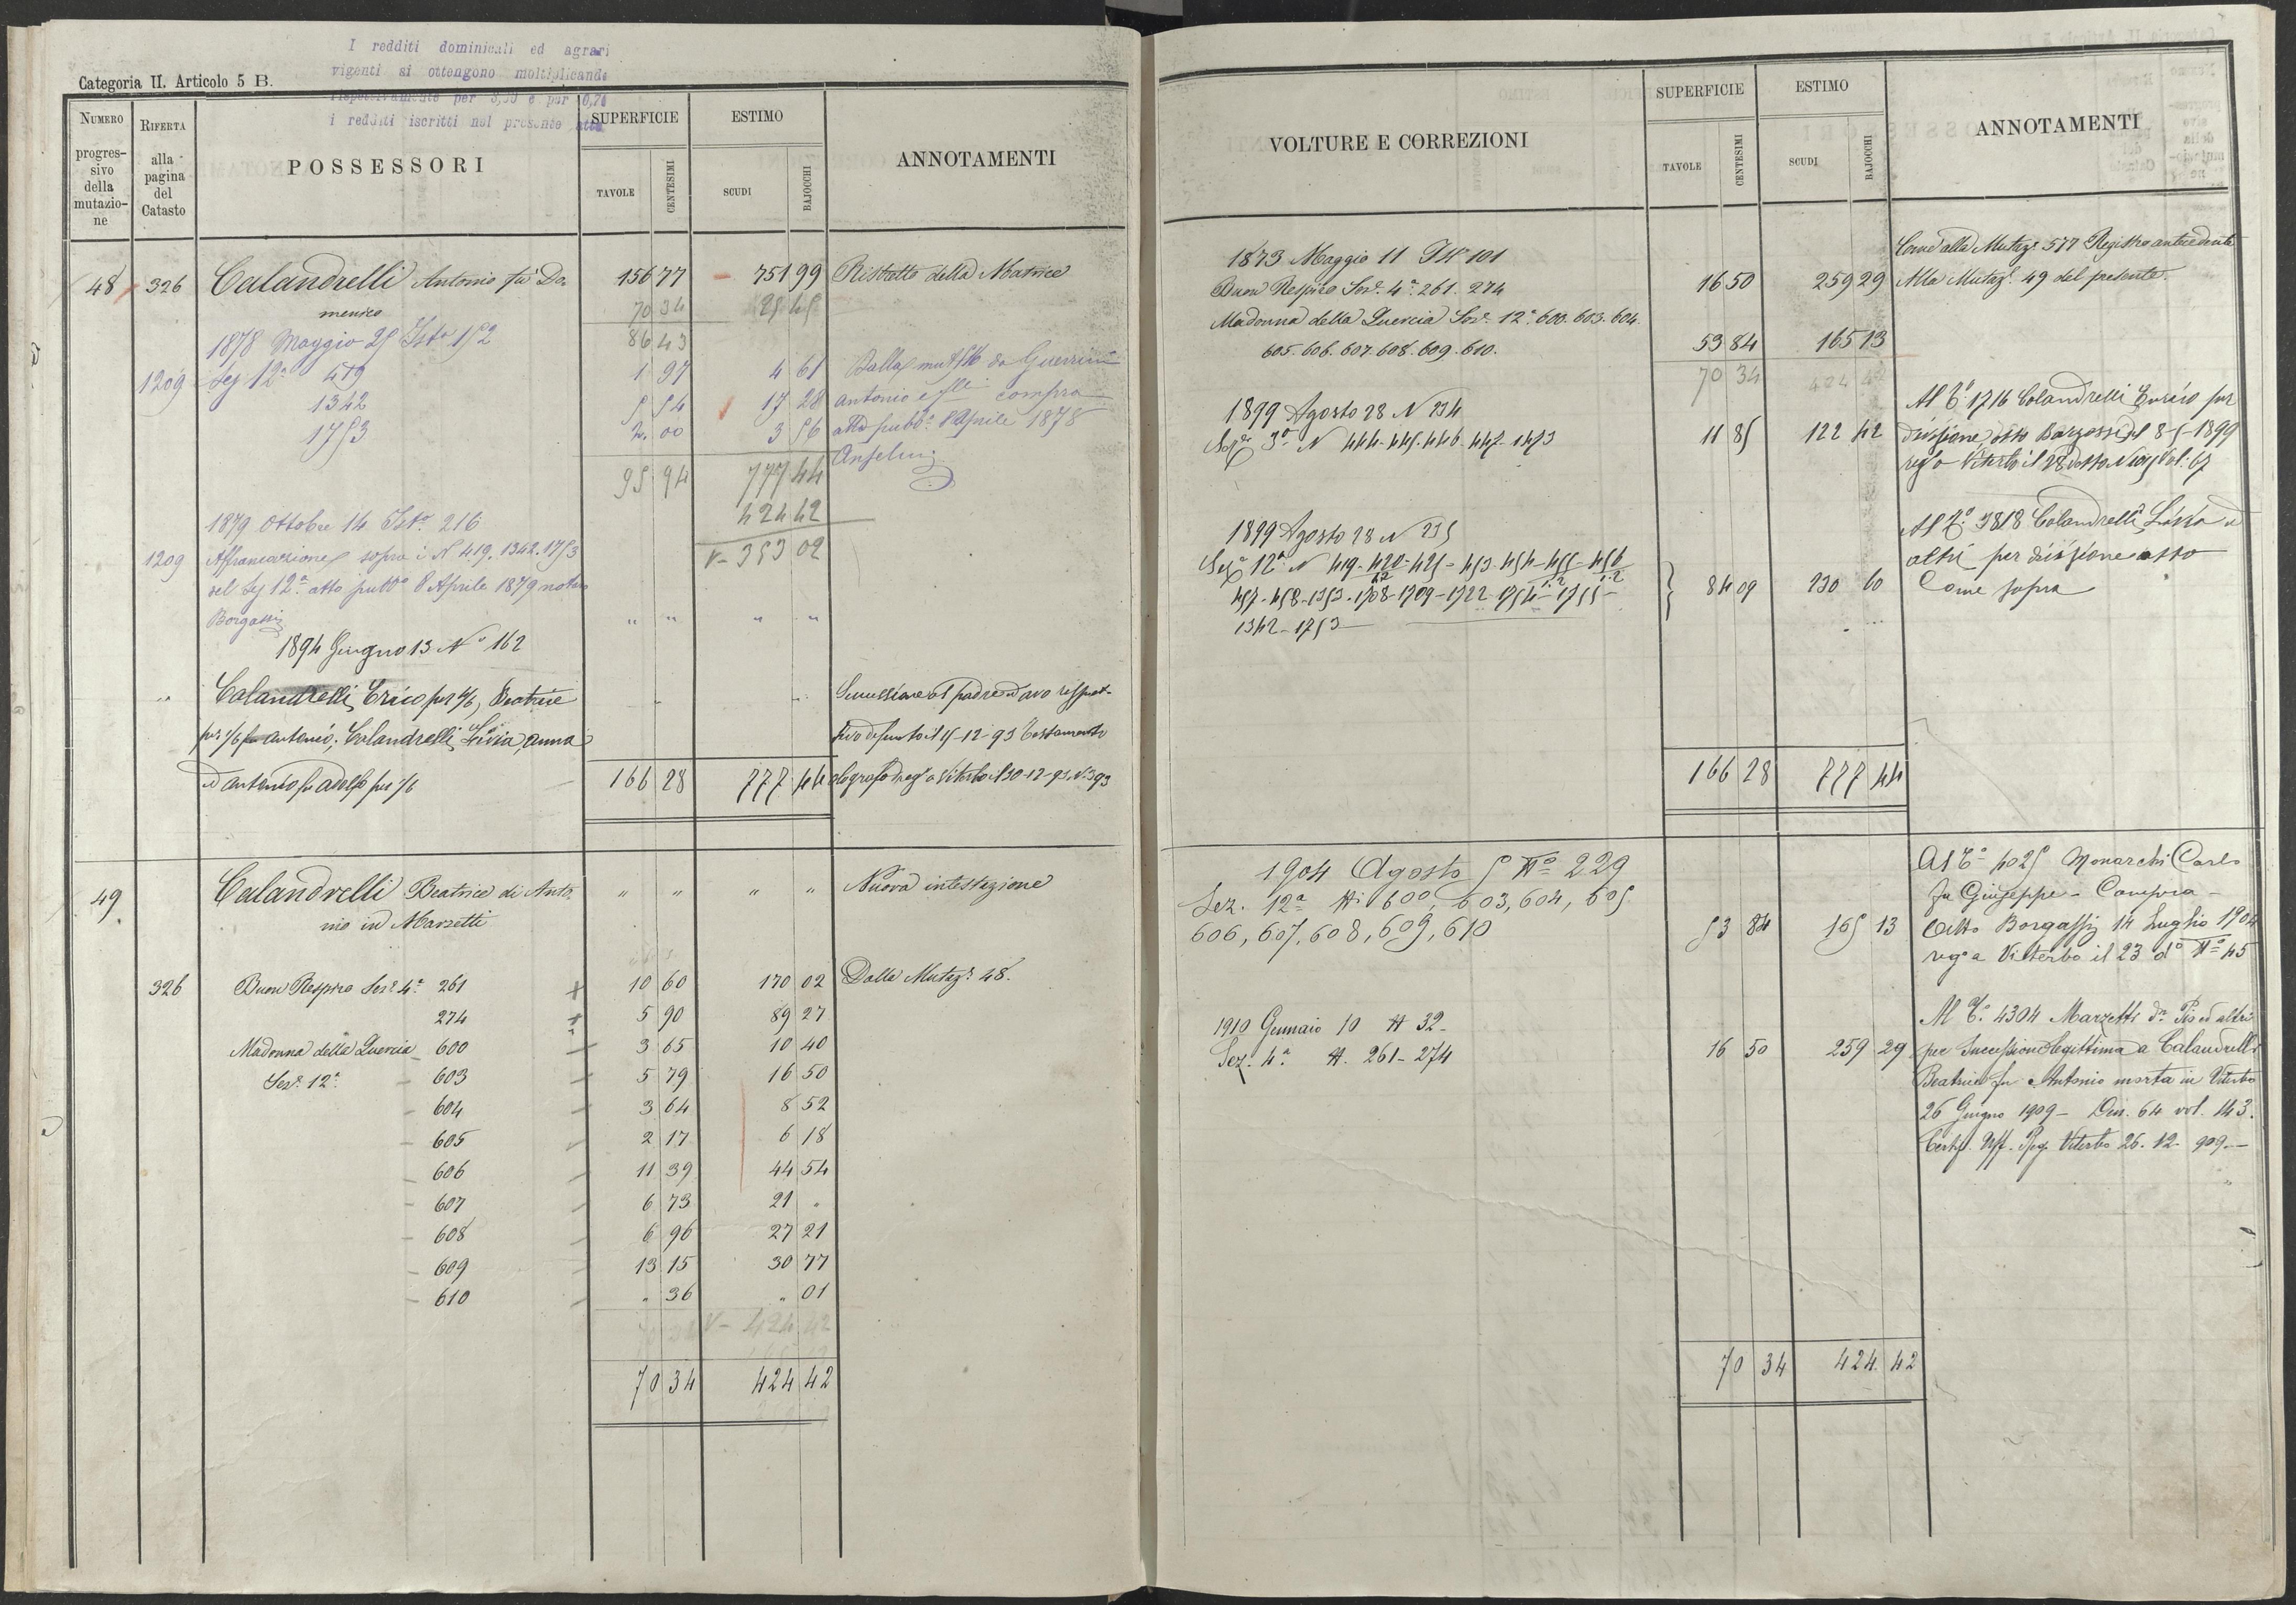 I redditi dominicali ed agrari
vigenti si ottengono moltiplicando
rispettivamente per 3,50 e per 0,70
i redditi iscritti nel presente atto
Categoria II. Articolo 5 B.
NUMERO progressivo della mutazione
RIFERTA alla pagina del Catasto
POSSESSORI
SUPERFICIE
TAVOLE CENTESIMI
ESTIMO
SCUDI BAJOCCHI
ANNOTAMENTI
48 326 Calandrelli Antonio fu Do= 156 77 751 99 Ristretto della Matrice
menico 70 34
1878 Maggio 25 Ist. 152 86 43
1209 Sez 12ª 419 1 97 4 61 Dalla mut. da Guerrini
1342 5 54 17 28 Antonio e flli compra
1753 2 00 3 56 atto pubb. 8 Aprile 1878
95 94 777 44 Anselmi
424 42
1879 Ottobre 14 Ist. 216 V- 353 02
1209 Affrancazione sopra i N. 419. 1342. 1753
nel Sez 12ª atto pubb. 8 Aprile 1879 notaro
Borgassi " " " "
1894 Giugno 13 Nº 162
" Calandrelli Erico per 4/6, Beatrice Successione al padre ed avo rispet-
per 1/6 fu Antonio; Calandrelli Livia, Anna tivo defunto il 15-12-93 Testamento
ed Antonio fu Adolfo per 1/6 166 28 777 44 olografo reg. a Viterbo il 30-12-93 N. 393
49 Calandrelli Beatrice di Anto= " " " " Nuova intestazione
nio in Marzetti
326 Buon Respiro Sez. 4ª 261 10 60 170 02 Dalla Mutaz. 48.
274 5 90 89 27
Madonna della Quercia 600 3 65 10 40
Sez. 12ª 603 5 79 16 50
604 3 64 8 52
605 2 17 6 18
606 11 39 44 54
607 6 73 21 "
608 6 96 27 21
609 13 15 30 77
610 " 36 " 01
V- 424 42
70 34 424 42
VOLTURE E CORREZIONI
SUPERFICIE
TAVOLE CENTESIMI
ESTIMO
SCUDI BAJOCCHI
ANNOTAMENTI
1873 Maggio 11 Ist. 101 Come alla Mutaz. 577 Registro antecedente
Buon Respiro Sez. 4ª 261. 274 16 50 259 29 Alla Mutaz. 49 del presente.
Madonna della Quercia Sez. 12ª 600. 603. 604.
605. 606. 607. 608. 609. 610. 53 84 165 13
70 34 424 42
1899 Agosto 28 N 234 Al Tº 1716 Calandrelli Enrico per
Sez. 3ª N 444-445-446-447-1453 11 85 122 42 divisione atto Borgassi del 8-5-1899
reg. a Viterbo il 28 detto
1899 Agosto 28 N 235 Al Tº 3818 Calandrelli Livia ed
Sez. 12ª N 419-420-425-453-454-455-456 altri per divisione atto
457-458-1353-1708-1709-1722-1754-1755- 84 09 230 60 Come sopra
1342-1753
166 28 777 44
1904 Agosto 5 Nº 229 Al Tº 4025 Monarchi Carlo
Sez. 12ª Ni 600, 603, 604, 605 fu Giuseppe - Compra -
606, 607, 608, 609, 610 53 84 165 13 Atto Borgassi 14 Luglio 1904
reg. a Viterbo il 23 dº Nº 45
1910 Gennaio 10 N 32- Al Tº 4304 Marzetti Pio ed altri
Sez. 4ª N. 261-274 16 50 259 29 per Successione legittima a Calandrelli
Beatrice fu Antonio morta in Viterbo
26 Giugno 1909- Den. 64 vol. 143.
Certif. Uff. Reg. Viterbo 26-12-909.-
70 34 424 42